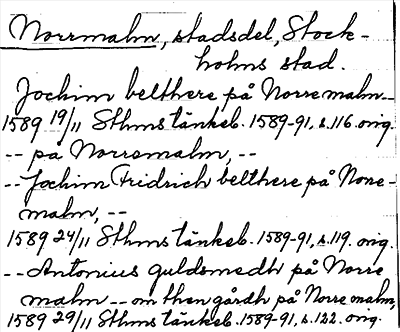 Norrmalm, stadsdel, Stock-
holms stad.
Jochim belthere på Norre malm --
1589 19/11 Sthms tänkeb. 1589-91, s. 116. orig.
-- på Norremalm, --
-- Jochim Fridrich belthere på Norre-
malm, --
1589 24/11 Sthms tänkeb. 1589-91, s. 119. orig.
-- Antonius guldsmedh på Norre
malm -- om then gårdh på Norre malm,
1589 29/11 Sthms tänkeb. 1589-91, s. 122. orig.